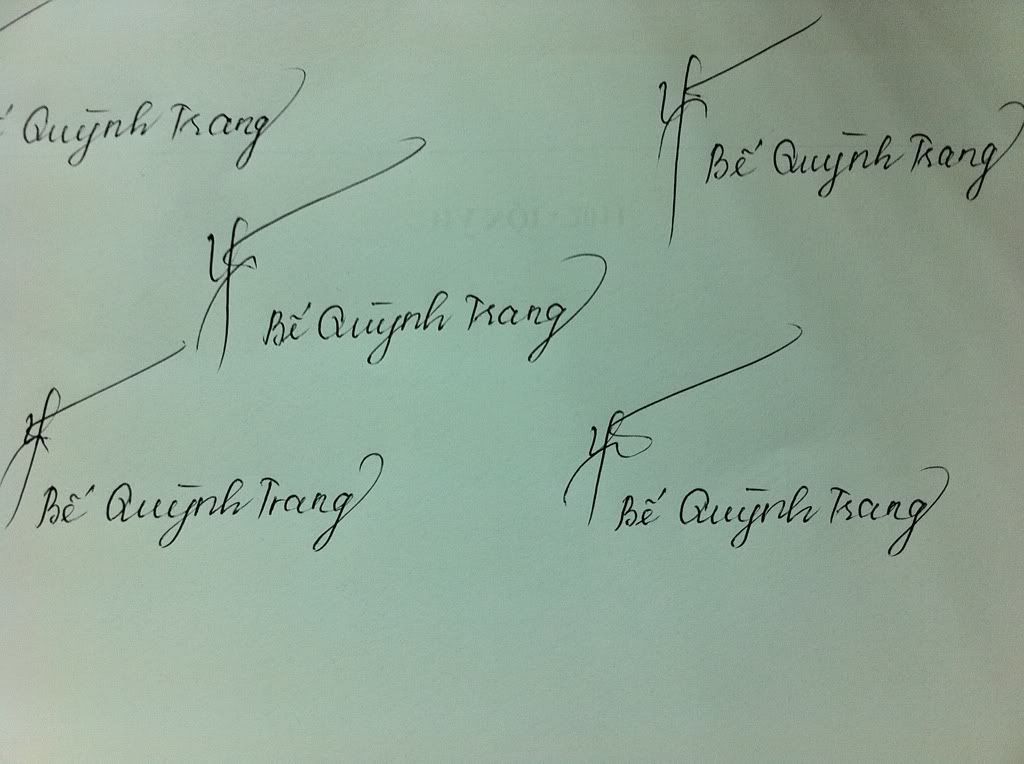 Quỳnh Trang
Bế Quỳnh Trang
Bế Quỳnh Trang
Bế Quỳnh Trang
Bế Quỳnh Trang